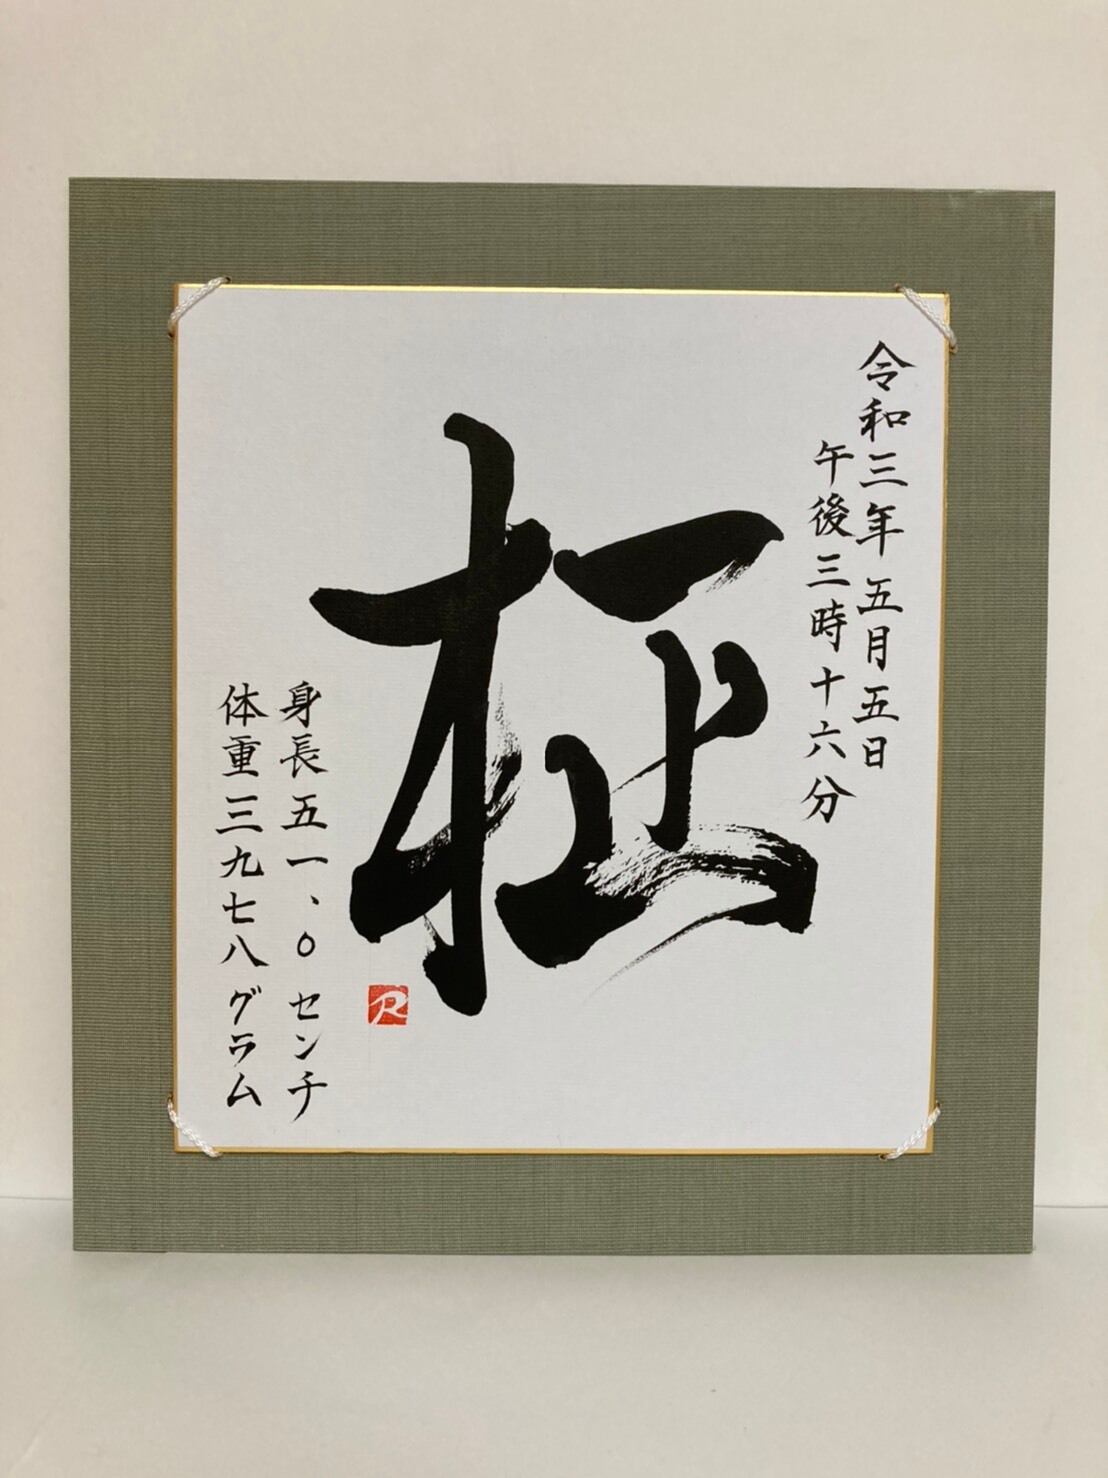 令和三年五月五日
午後三時十六分
柾
身長五一、〇センチ
体重三九七八グラム
R